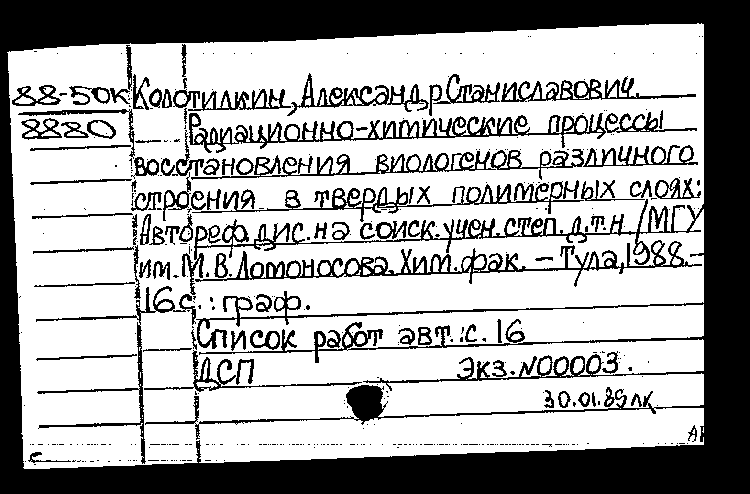 88-50К Колотилкин, Александр Станиславович.
8880 Радиационно-химические процессы
восстановления виологенов различного
строения в твердых полимерных слоях:
Автореф. дис. на соиск. учен. степ. д.т.н / МГУ
им. М.В. Ломоносова. Хим. фак. – Тула, 1988. –
16 с. : граф.
Список работ авт.: с. 16
ДСП Экз. N00003.
30.01.89 лк